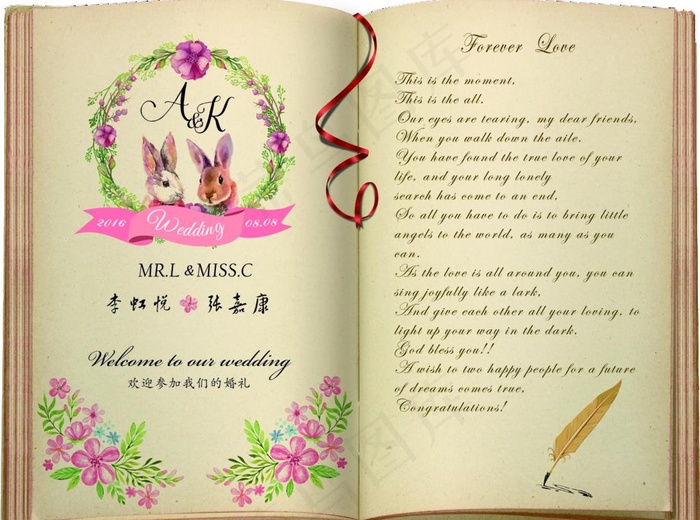 A&K
2016 Wedding 08.08
MR.L &MISS.C
李虹悦 张嘉康
Welcome to our wedding
欢迎参加我们的婚礼
Forever Love
This is the moment.
This is the all.
Our eyes are tearing, my dear friends,
When you walk down the aile.
You have found the true love of your
life, and your long lonely
search has come to an end.
So all you have to do is to bring little
angels to the world, as many as you
can.
As the love is all around you, you can
sing joyfully like a lark,
And give each other all your loving, to
light up your way in the dark.
God bless you!!
A wish to two happy people for a future
of dreams comes true,
Congratulations!